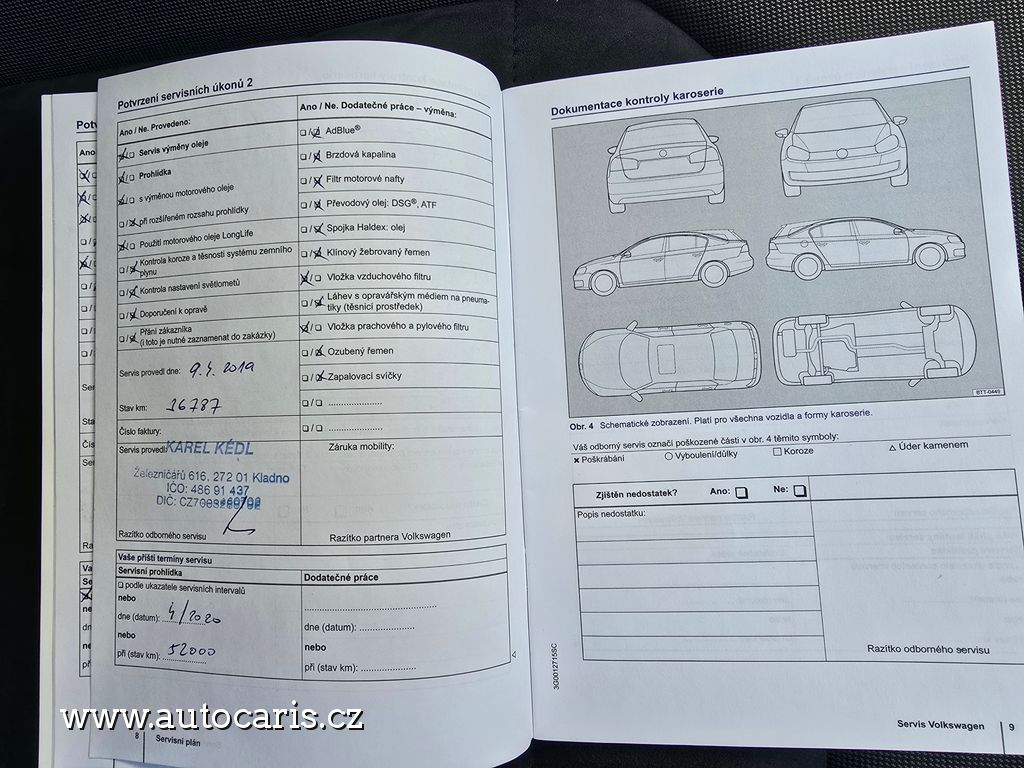 Potvrzení servisních úkonů 2
Ano / Ne. Provedeno:
Servis výměny oleje
Prohlídka
s výměnou motorového oleje
při rozšířeném rozsahu prohlídky
Použití motorového oleje LongLife
Kontrola koroze a těsnosti systému zemního
plynu
Kontrola nastavení světlometů
Doporučení k opravě
Přání zákazníka
(i toto je nutné zaznamenat do zakázky)
Servis provedl dne: 9.4. 2019
Stav km: 36787
Číslo faktury:
Servis provedl:
KAREL KÉDL
Železničářů 616, 272 01 Kladno
IČO: 486 91 437
Razítko odborného servisu
Ano / Ne. Dodatečné práce – výměna:
AdBlue®
Brzdová kapalina
Filtr motorové nafty
Převodový olej: DSG®, ATF
Spojka Haldex: olej
Klínový žebrovaný řemen
Vložka vzduchového filtru
Láhev s opravářským médiem na pneuma-
tiky (těsnicí prostředek)
Vložka prachového a pylového filtru
Ozubený řemen
Zapalovací svíčky
Záruka mobility:
Razítko partnera Volkswagen
Vaše příští termíny servisu
Servisní prohlídka
podle ukazatele servisních intervalů
nebo
dne (datum): 4/2020
nebo
při (stav km): 52000
Dodatečné práce
dne (datum): ....................
nebo
při (stav km): ....................
8 Servisní plán
www.autocaris.cz
Dokumentace kontroly karoserie
BTT-0449
Obr. 4 Schematické zobrazení. Platí pro všechna vozidla a formy karoserie.
Váš odborný servis označí poškozené části v obr. 4 těmito symboly:
× Poškrábání ○ Vyboulení/důlky □ Koroze △ Úder kamenem
Zjištěn nedostatek? Ano: □ Ne: □
Popis nedostatku:
Razítko odborného servisu
3G0012715SC
Servis Volkswagen 9